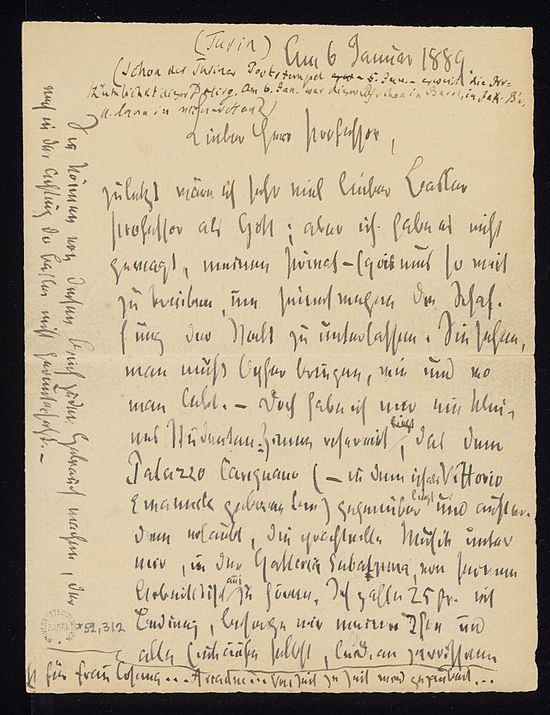 (Turin) Am 6 Januar 1889
(Schon der Turiner Poststempel – 5. Jan. – erweist die Irr-
thümlichkeit dieser Datirg. Am 6. Jan. war dieser schon in Basel, in Jak. B's
Lieber Herr Professor,
zuletzt wäre ich sehr viel lieber Basler
Professor als Gott; aber ich habe es nicht
gewagt, meinen Privat-Egoismus so weit
zu treiben, um seinetwegen die Schaf-
fung der Welt zu unterlassen. Sie sehen,
man muß Opfer bringen, wie und wo
man lebt. – Doch habe ich mir ein klei-
nes Studenten-Zimmer reservirt, das dem
Palazzo Carignano (– in dem ich als Vittorio
Emanuele geboren bin) gegenüber liegt und außer-
dem erlaubt, die prachtvolle Musik unter
mir, in der Galleria Subalpina, von seinem
Arbeitstisch aus zu hören. Ich zahle 25 fr. mit
Bedienung, besorge mir meinen Thee und
alle Einkäufe selbst, leide an zerrissenen
für Frau Cosima... Ariadne... Von Zeit zu Zeit wird gezaubert...
Sie können von diesem Brief jeden Gebrauch machen, der
mich in der Achtung der Basler nicht heruntersetzt. –
*52,312